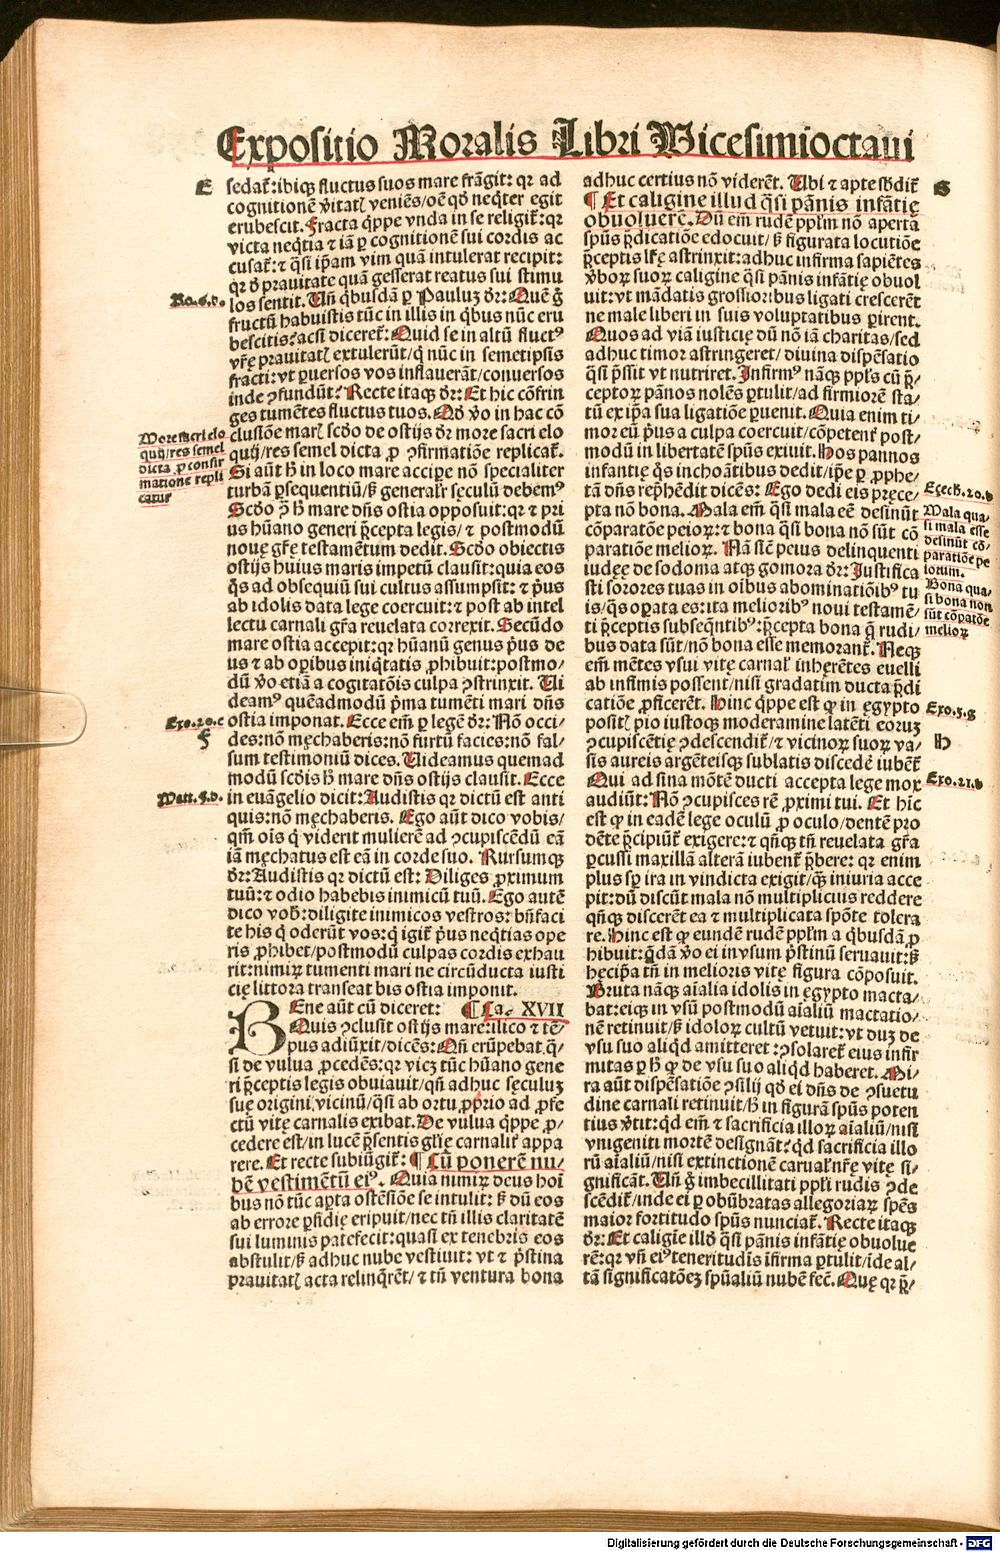 Expositio Moralis Libri Vicesimioctaui
E
sedat᷑: ibiqꝫ fluctus suos mare frãgit: qꝛ ad
cognitionẽ v̓itatꝭ veniẽs/oẽ qd̓ neq̃ter egit
erubescit. Fracta q̃ppe vnda in se religit᷑: qꝛ
victa neq̃tia ⁊ iã ꝑ cognitionẽ sui cordis ac
cusat᷑: ⁊ q̃si ip̃am vim quã intulerat recipit:
qꝛ d̓ prauitate quã gesserat reatus sui stimu
Ro.6.d.
los sentit. Vñ q̓busdã ꝑ Pauluꝫ dr̃: Quẽ g̃
fructũ habuistis tũc in illis in q̓bus nũc eru
bescitis? acsi diceret᷑: Quid se in altũ fluctꝰ
vr̃ę prauitatꝭ extulerũt/q̓ nũc in semetipsis
fracti: vt ꝑuersos vos inflauerãt/conuersos
inde ꝯfundũt? Recte itaqꝫ dr̃: Et hic cõfrin
ges tumẽtes fluctus tuos. Qd̓ v̓o in hac cõ
More sacri elo
quij/res semel
dicta ꝓ confir
matione repli
catur
clusiõe marꝭ scd̓o de ostijs dr̃ more sacri elo
quij/res semel dicta ꝓ ꝯfirmatiõe replicat᷑.
Si aũt h̓ in loco mare accipe nõ specialiter
turbã ꝑsequentiũ/ß generalr̓ sęculũ debemꝰ
Scd̓o ꝓ h̓ mare dñs ostia opposuit: qꝛ ⁊ pri
us hũano generi p̃cepta legis/⁊ postmodũ
nouę gr̃e testamẽtum dedit. Scd̓o obiectis
ostijs huius maris impetũ clausit: quia eos
q̓s ad obsequiũ sui cultus assumpsit: ⁊ p̓us
ab idolis data lege coercuit: ⁊ post ab intel
lectu carnali gr̃a reuelata correxit. Secũdo
mare ostia accepit: qꝛ hũanũ genus p̓us de
us ⁊ ab oꝑibus iniq̃tatis ꝓhibuit: postmo/
dũ v̓o etiã a cogitatõis culpa ꝯstrinxit. Vi
deamꝰ quẽadmodũ p̓ma tumẽti mari dñs
Exo.20.c
F
ostia imponat. Ecce em̃ ꝑ legẽ dr̃: Nõ occi/
des: nõ męchaberis: nõ furtũ facies: nõ fal/
sum testimoniũ dices. Videamus quemad
modũ scd̓is h̓ mare dñs ostijs clausit. Ecce
Matt.5.d.
in euãgelio dicit: Audistis qꝛ dictũ est anti
quis: nõ męchaberis. Ego aũt dico vobis/
qm̃ oĩs q̓ viderit mulierẽ ad ꝯcupiscẽdũ eã
iã męchatus est eã in corde suo. Rursumqꝫ
dr̃: Audistis qꝛ dictũ est: Diliges ꝓximum
tuũ: ⁊ odio habebis inimicũ tuũ. Ego autẽ
dico vob̓: diligite inimicos vestros: bñfaci
te his q̓ oderũt vos: q̓ igit᷑ p̓us neq̃tias ope
ris ꝓhibet/postmodũ culpas cordis exhau
rit: nimiꝝ tumenti mari ne circũducta iusti
cię littora transeat bis ostia imponit.
BEne aũt cũ diceret: ¶ Ca. XVII
Quis ꝯclusit ostijs mare: ilico ⁊ tẽ/
pus adiũxit/dicẽs: Qñ erũpebat q̃/
si de vulua ꝓcedẽs: qꝛ viceꝫ tũc hũano gene
ri p̃ceptis legis obuiauit/qñ adhuc sęculuꝫ
suę origini vicinũ/q̃si ab ortu ꝓprio ad ꝓfe
ctũ vitę carnalis exibat. De vulua q̃ppe ꝓ/
cedere est/in lucẽ p̃sentis gl̓ię carnalit᷑ appa
rere. Et recte subiũgit᷑: ¶ Cũ ponerẽ nu/
bẽ vestimẽtũ eiꝰ. Quia nimiꝝ deus hoĩ
bus nõ tũc aꝑta ostẽsiõe se intulit: ß dũ eos
ab errore ꝑfidię eripuit/nec tñ illis claritatẽ
sui luminis patefecit: quasi ex tenebris eos
abstulit/ß adhuc nube vestiuit: vt ⁊ p̓stina
prauitatꝭ acta relinq̃rẽt/⁊ tñ ventura bona
G
adhuc certius nõ viderẽt. Vbi ⁊ apte sb̓dit᷑
¶ Et caligine illud q̃si pãnis infãtię
obuoluere. Dũ em̃ rudẽ ppl̓m nõ aperta
spũs p̃dicatiõe edocuit/ß figurata locutiõe
p̃ceptis lr̃ę astrinxit: adhuc infirma sapiẽtes
v̓boꝝ suoꝝ caligine q̃si pãnis infãtię obuol
uit: vt mãdatis grossioribus ligati crescerẽt
ne male liberi in suis voluptatibus ꝑirent.
Quos ad viã iusticię dũ nõ iã charitas/sed
adhuc timor astringeret/diuina dispẽsatio
q̃si p̃ssit vt nutriret. Infirmꝰ nãqꝫ ppl̓s cũ p̃/
ceptoꝝ pãnos nolẽs ꝑtulit/ad firmiorẽ sta/
tũ ex ip̃a sua ligatiõe ꝑuenit. Quia enim ti/
mor eũ p̓us a culpa coercuit/cõpetent᷑ post/
modũ in libertatẽ spũs exiuit. Hos pannos
infantię q̓s inchoãtibus dedit/ip̃e ꝑ ꝓphe/
Eȝech.20.d
tã dñs rep̃hẽdit dicẽs: Ego dedi eis pręce/
Mala qua/
si mala esse
desinũt cõ/
paratiõe pe
iorum.
Bona qua/
si bona non
sũt cõpatõe
melioꝝ
pta nõ bona. Mala em̃ q̃si mala eẽ desinũt
cõparatõe peioꝝ: ⁊ bona q̃si bona nõ sũt cõ
paratiõe melioꝝ. Nã sic̃ peius delinquenti
iudęę de sodoma atqꝫ gomora dr̃: Justifica
sti sorores tuas in oĩbus abominatiõibꝰ tu
is/q̓s oꝑata es: ita melioribꝰ noui testamẽ/
ti p̃ceptis subseq̃ntibꝰ: p̃cepta bona q̃ rudi/
bus data sũt/nõ bona esse memorant᷑. Neqꝫ
em̃ mẽtes vsui vitę carnal᷑ inhęrẽtes euelli
ab infimis possent/nisi gradatim ducta p̃di
Exo.3.g
catiõe ꝓficerẽt. Hinc q̃ppe est ꝙ in ęgypto
positꝭ pio iustoqꝫ moderamine latẽti eoruꝫ
H
ꝯcupiscẽtię ꝯdescendit᷑/⁊ vicinoꝝ suoꝝ va/
sis aureis argẽteisqꝫ sublatis discedẻ iubẽt᷑
Exo.21.d
Qui ad sina mõtẽ ducti accepta lege mox
audiũt: Nõ ꝯcupisces rẽ ꝓximi tui. Et hĩc
est ꝙ in eadẽ lege oculũ ꝓ oculo/dentẽ pro
dẽte p̃cipiũt᷑ exigere: ⁊ qñqꝫ tñ reuelata gr̃a
ꝑcussi maxillã alterã iubent᷑ p̃bere: qꝛ enim
plus sꝑ ira in vindicta exigit/q̃ꝫ iniuria acce
pit: dũ discũt mala nõ multiplicius reddere
qñqꝫ discerẽt ea ⁊ multiplicata spõte tolera
re. Hinc est ꝙ eundẽ rudẽ ppl̓m a q̓busdã ꝓ
hibuit: q̃dã v̓o ei in vsum p̓stinũ seruauit: ß
hęc ip̃a tñ in melioris vitę figura cõposuit.
Bruta nãqꝫ aĩalia idolis in ęgypto macta/
bat: eiqꝫ in vsũ postmodũ aĩaliũ mactatio/
nẽ retinuit/ß idoloꝝ cultũ vetuit: vt duꝫ de
vsu suo aliq̃d amitteret: ꝯsolaret᷑ eius infir
mitas ꝑ h̓ ꝙ de vsu suo aliq̃d haberet. Mi/
ra aũt dispẽsatiõe ꝯsilij qd̓ ei dñs de ꝯsuetu
dine carnali retinuit/h̓ in figurã spũs poten
tius v̓tit: q̃d em̃ ⁊ sacrificia illoꝝ aĩaliũ/nisi
vnigeniti mortẽ designãt: q̃d sacrificia illo
rũ aĩaliũ/nisi extinctionẽ carual̓ nr̃ę vitę si/
gnificãt. Vñ g̃ imbecillitati ppl̓i rudis ꝯde
scẽdit᷑/inde ei ꝑ obũbratas allegoriaꝝ spẽs
maior fortitudo spũs nunciat᷑. Recte itaqꝫ
dr̃: Et caligĩe illd̓ q̃si pãnis infãtię obuolue
rẽ: qꝛ vñ eiꝰ teneritudĩs ĩfirma ꝑtulit/ĩde al/
tã significatõeꝫ spũaliũ nubẽ fec̃. Quę qꝛ p̃/
Digitalisierung gefördert durch die Deutsche Forschungsgemeinschaft - DFG